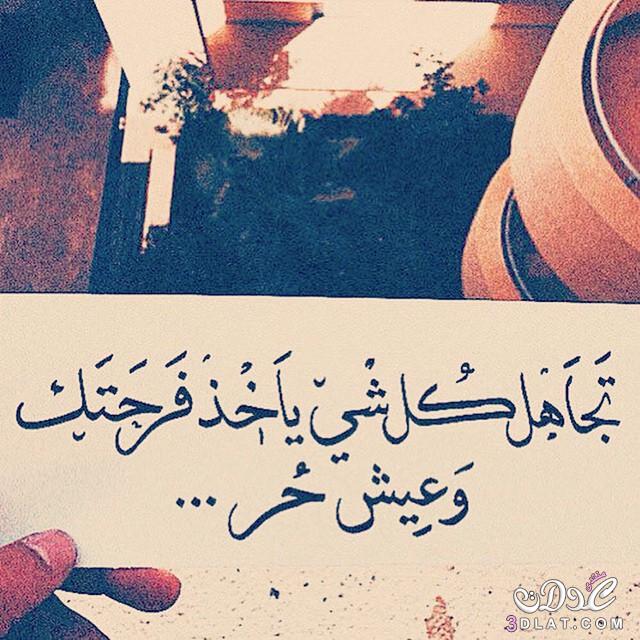 تَجَاهَل كُل شْي يَاخْذ فَرحَتَك
وَعِيش حُر ...
عدلات
3DLAT.COM